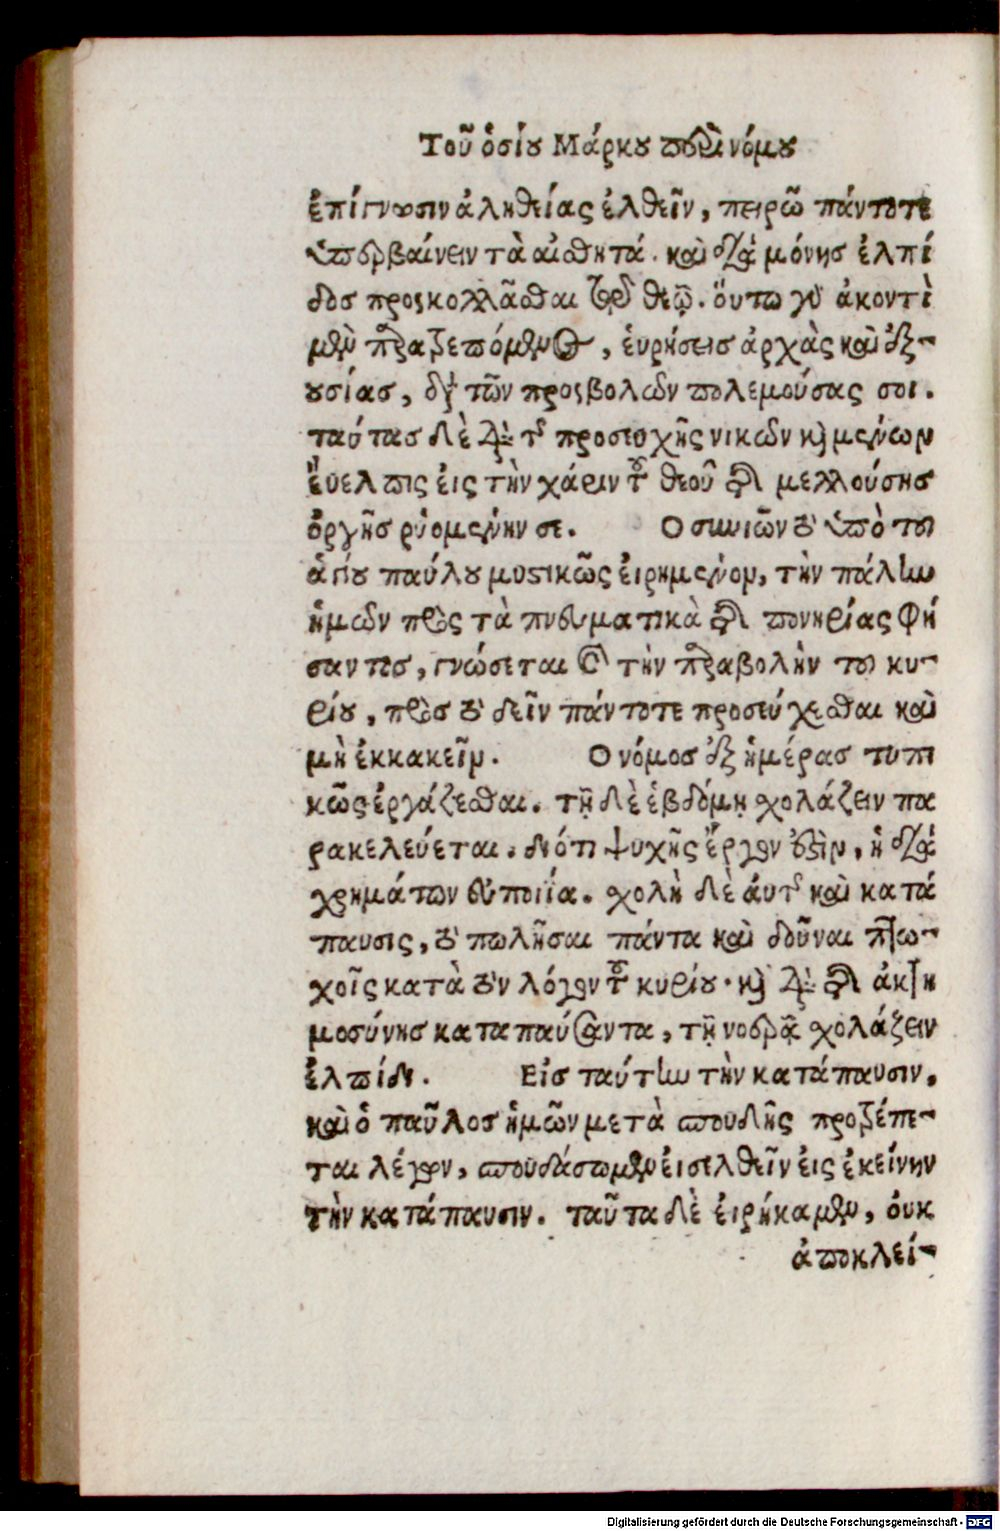 Τοῦ ὁσίου Μάρκου περὶ νόμου
ἐπίγνωσιν ἀληθείας ἐλθεῖν, πειρῶ πάντοτε
ὑπερβαίνειν τὰ αἰσθητά. καὶ διὰ μόνης ἐλπί
δος προσκολλᾶσθαι τῷ θεῷ. ὅυτω γὰρ ἀκοντὶ
μὲν παρατρεπόμενος, ἑυρήσεις ἀρχὰς καὶ ἐξ-
ουσίας, διὰ τῶν προσβολῶν πολεμούσας σοι.
ταύτας δὲ διὰ τῆς προσευχῆς νικῶν καὶ μένων
ἔυελπις ἐις τὴν χάριν τοῦ θεοῦ τῆς μελλούσης
ὀργῆς ρυομένην σε. Ο συνιῶν τὸ ὑπὸ του
ἁγίου παύλου μυστικῶς ἐιρημένον, τὴν πάλην
ἡμῶν πρὸς τὰ πνευματικὰ τῆς πονηρίας φή
σαντες, γνώσεται καὶ τὴν παραβολὴν του κυ-
ρίου, πρὸς τὸ δεῖν πάντοτε προσεύχεσθαι καὶ
μὴ ἐκκακεῖν. Ο νόμος ἓξ ἡμέρας τυπι
κῶς ἐργάζεσθαι. τῇ δὲ ἑβδόμῃ σχολάζειν πα
ρακελεύεται. διότι ψυχῆς ἔργον ἐστὶν, ἡ διὰ
χρημάτων ἐυποιία. σχολὴ δὲ ἀυτῆς καὶ κατά
παυσις, τὸ πωλῆσαι πάντα καὶ δοῦναι πτω-
χοῖς κατὰ τὸν λόγον τοῦ κυρίου. καὶ διὰ τῆς ἀκτη
μοσύνης καταπαύσαντα, τῇ νοερᾷ σχολάζειν
ἐλπίδι. Εἰς ταύτην τὴν κατάπαυσιν,
καὶ ὁ παῦλος ἡμῶν μετὰ σπουδῆς προτρέπε-
ται λέγων, σπουδάσωμεν ἐισελθεῖν ἐις ἐκείνην
τὴν κατάπαυσιν. ταῦτα δὲ ἐιρήκαμεν, ὀυκ
ἀποκλεί-
Digitalisierung gefördert durch die Deutsche Forschungsgemeinschaft - DFG